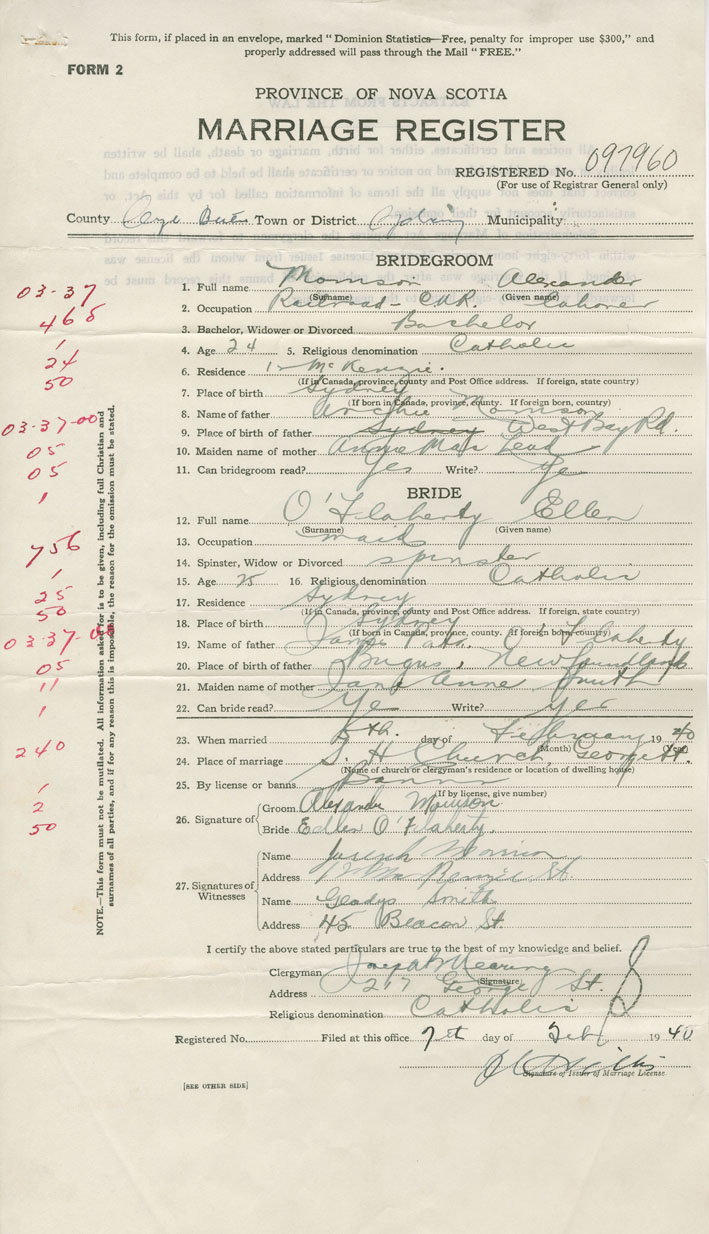 This form, if placed in an envelope, marked "Dominion Statistics—Free, penalty for improper use $300," and
properly addressed will pass through the Mail "FREE."
FORM 2
PROVINCE OF NOVA SCOTIA
MARRIAGE REGISTER
REGISTERED No. 097960
(For use of Registrar General only)
County Cape Breton Town or District Sydney Municipality
BRIDEGROOM
1. Full name Morrison Alexander
(Surname) (Given name)
2. Occupation Railroad - C.N.R. Laborer
3. Bachelor, Widower or Divorced Bachelor
4. Age 24 5. Religious denomination Catholic
6. Residence McKenzie.
(If in Canada, province, county and Post Office address. If foreign, state country)
7. Place of birth Sydney
(If born in Canada, province, county. If foreign born, country)
8. Name of father Archie Morrison
9. Place of birth of father Sydney West Bay Rd.
10. Maiden name of mother Annie
11. Can bridegroom read? Yes Write? Ye
BRIDE
12. Full name O'Flaherty Ellen
(Surname) (Given name)
13. Occupation maid
14. Spinster, Widow or Divorced spinster
15. Age 25 16. Religious denomination Catholic
17. Residence Sydney
(If in Canada, province, county and Post Office address. If foreign, state country)
18. Place of birth Sydney
(If born in Canada, province, county. If foreign born, country)
19. Name of father O'Flaherty
20. Place of birth of father Brigus, Newfoundland
21. Maiden name of mother Jane Anne Smith
22. Can bride read? Ye Write? Yes
23. When married 5th. day of February 1940
(Month) (Year)
24. Place of marriage S. H Church, George St.
(Name of church or clergyman's residence or location of dwelling house)
25. By license or banns Banns
(If by license, give number)
26. Signature of Groom Alexander Morrison
Bride Ellen O'Flaherty.
27. Signatures of Witnesses
Name Joseph Morrison
Address St.
Name Gladys Smith
Address 45 Beacon St.
I certify the above stated particulars are true to the best of my knowledge and belief.
Clergyman Joseph
(Signature)
Address 217 George St.
Religious denomination Catholic
Registered No. Filed at this office 7th day of Feb 1940
Signature of Issuer of Marriage License.
[SEE OTHER SIDE]
NOTE.—This form must not be mutilated. All information asked for is to be given, including full Christian and
surnames of all parties, and if for any reason this is impossible, the reason for the omission must be stated.
03-37
465
1
24
50
03-37-00
05
05
1
756
1
25
50
03-37-00
05
11
1
240
1
2
50